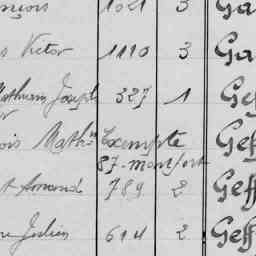 nçois 1021 3 Ga
s Victor 1110 3 Ga
Mathurin Joseph 327 1 Gef
ois Mathin Exempte Geff
87 - montfort
t Amand 789 2 Geff
re Julien 614 2 Geff